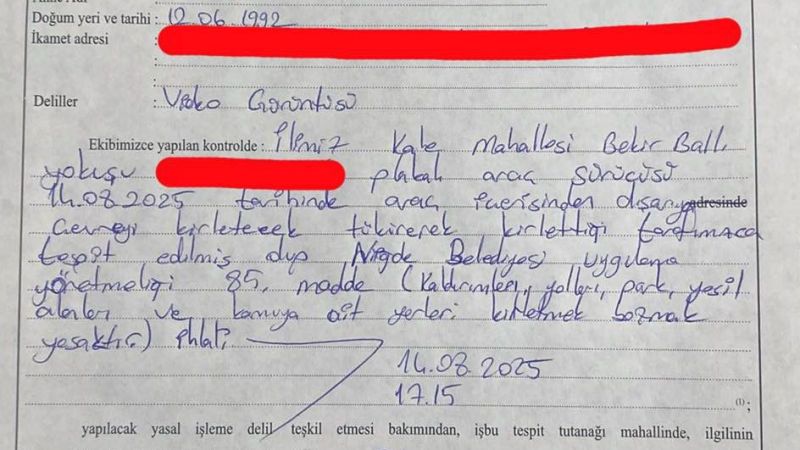 Doğum yeri ve tarihi : 12.06.1992
İkamet adresi :
Deliller : Video Görüntüsü
Ekibimizce yapılan kontrolde : İlimiz Kale Mahallesi Bekir Ballı
yokuşu plakalı araç sürücüsü
14.08.2025 tarihinde araç içerisinden dışarıya adresinde
Çevreyi kirletecek tükürerek kirlettiği tarafımızca
tespit edilmiş olup Niğde Belediyesi uygulama
yönetmeliği 85. madde (Kaldırımları, yolları, park, yeşil
alanları ve kamuya ait yerleri kirletmek bozmak
yasaktır.) ihlali
14.08.2025
17.15
(1) ;
yapılacak yasal işleme delil teşkil etmesi bakımından, işbu tespit tutanağı mahallinde, ilgilinin